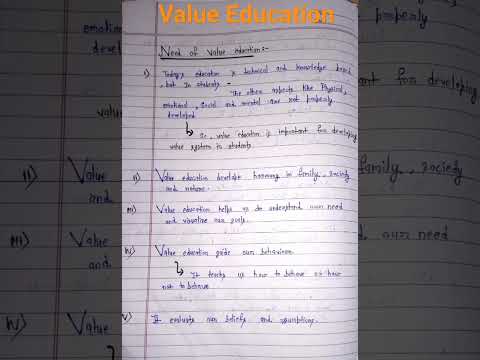 Value Education
Need of Value education:-
I) Today's education is technical and knowledge based
, but In students -
The others aspects like Physical,
emotional, social and mental are not properly
developed
So, value education is important for developing
value system in students.
II) Value education develops harmony in family, society
and nature.
III) Value education helps us to understand own need
and visualise our goals.
IV) Value education guide our behaviour.
It teachs us how to behave or how
not to behave.
V) It evaluate our beliefs and assumptions.